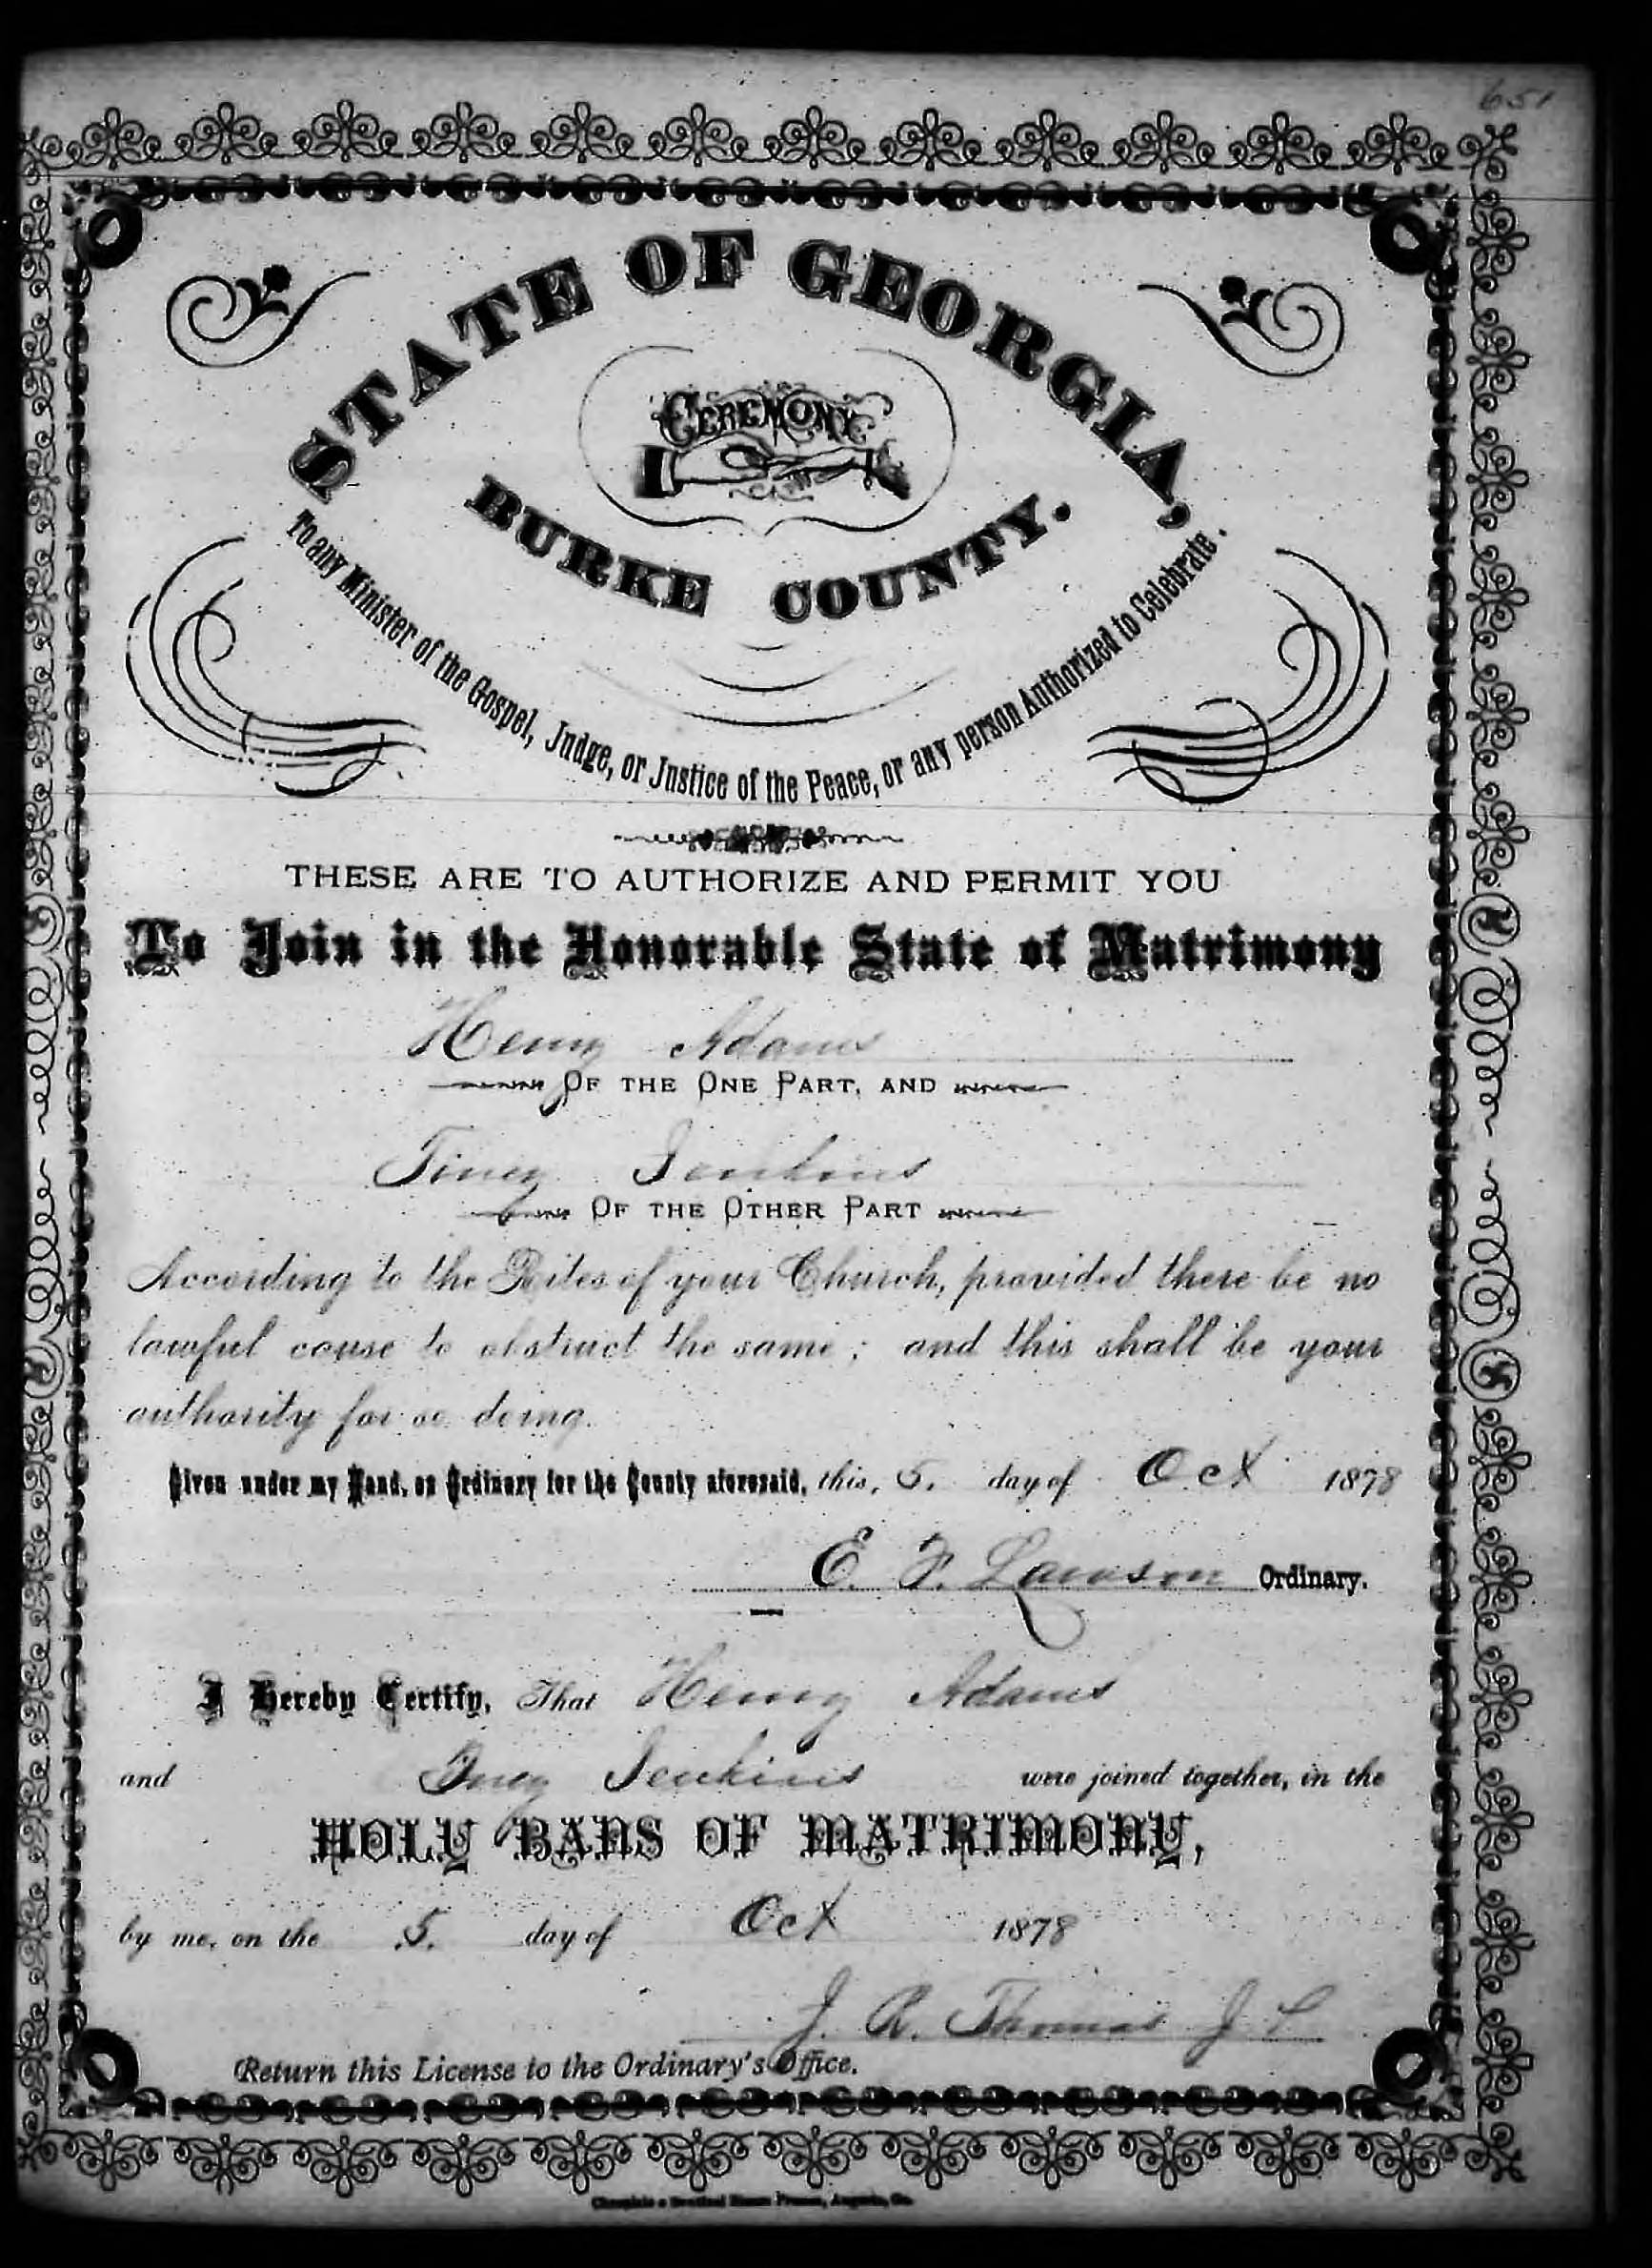 651
STATE OF GEORGIA,
CEREMONY
BURKE COUNTY.
To any Minister of the Gospel, Judge, or Justice of the Peace, or any person Authorized to Celebrate.
THESE ARE TO AUTHORIZE AND PERMIT YOU
To Join in the Honorable State of Matrimony
Henry Adams
OF THE ONE PART, AND
Tiney Jenkins
OF THE OTHER PART
According to the Rites of your Church, provided there be no
lawful cause to obstruct the same; and this shall be your
authority for so doing.
Given under my Hand, as Ordinary for the County aforesaid, this, 5. day of Oct 1878
E. F. Lawson Ordinary.
I Hereby Certify, That Henry Adams
and Jenkins were joined together, in the
HOLY BANS OF MATRIMONY,
by me, on the 5. day of Oct 1878
J. R. Thomas J P
Return this License to the Ordinary's Office.
Chronicle & Sentinel Steam Presses, Augusta, Ga.